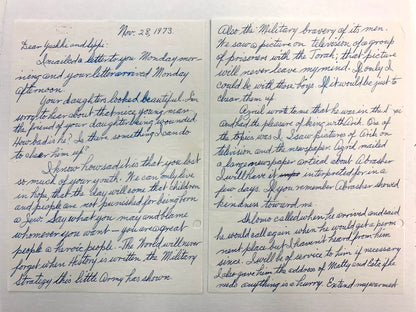 Nov. 28, 1973
Dear Yaekki and Zippi:
I mailed a letter to you Monday mor-
ning and your letter arrived Monday
afternoon.
Your daughters looked beautiful. I'm
sorry to hear about that nice young man
the friend of your daughter being wounded.
How bad is he? Is there something I can do
to cheer him up?
I know how sad it is that you lost
so much of your youth. We can only live
in hope that the day will come that children
and people are not punished for being born
a Jew. Say what you may and blame
whomever you want - you are a great
people a heroic people - The World will never
forget when History is written, the Military
strategy this little Army has shown.
Also the Military bravery of its men.
We saw a picture on television of a group
of prisoners with the Torah, that picture
will never leave my mind. If only I
could be with those boys. If it would be just to
cheer them up.
wrote me that he was in that
and had the pleasure of being with Arik. One of
the topics was I. I saw pictures of Arik on
television and the newspaper. mailed
a large newspaper article about Abrasher
I will have it interpreted for in a
few days. If you remember Abrasher should
kindness toward me.
Shlomo called when he arrived and said
he would call again when he would get a perm-
nent place but I haven't heard from him
since. I will be of service to him if necessary
I also gave him the address of Matty and Cate if he
needs anything in a hurry. Extend my warmest